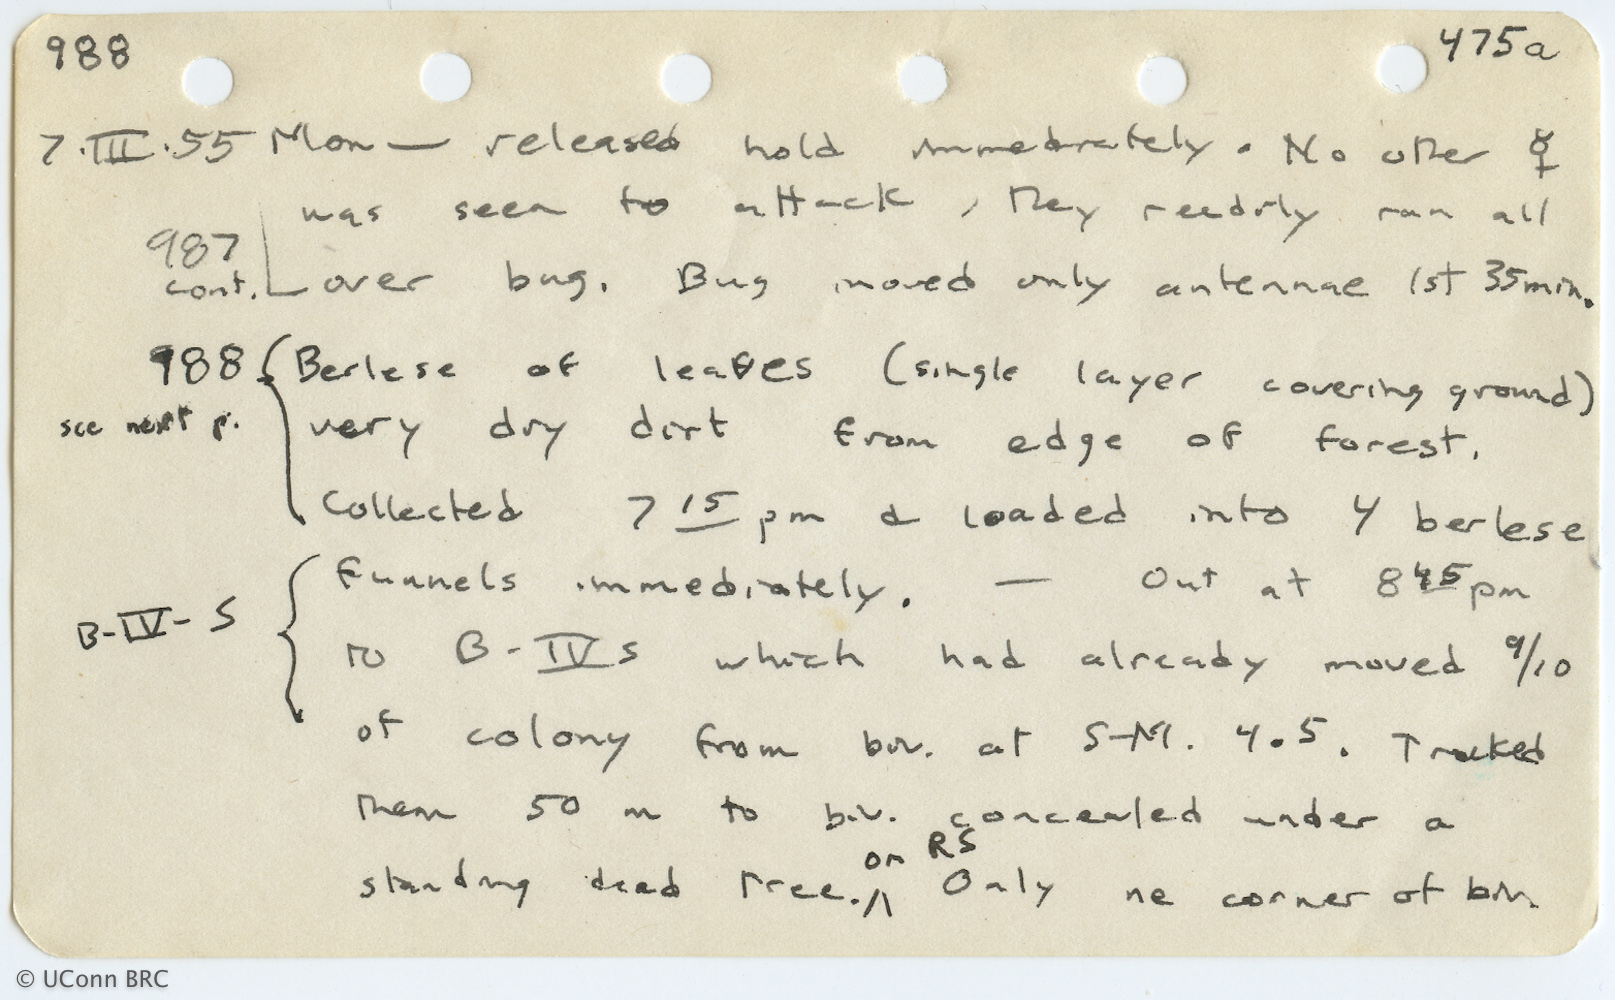 988 475a
7·III·55 Mon — released hold immediately. No other ☿
was seen to attack, they readily ran all
987
cont. over bug. Bug moved only antennae 1st 35 min.
988 { Berlese of leaves (single layer covering ground)
see next p. very dry dirt from edge of forest.
Collected 7 15 pm & loaded into 4 berlese
funnels immediately. — Out at 8 45 pm
B-IV-S { to B-IV S which had already moved 9/10
of colony from biv. at S-M. 4.5. Tracked
them 50 m to biv. concealed under a
on RS
standing dead tree. /\ Only ne corner of biv.
© UConn BRC